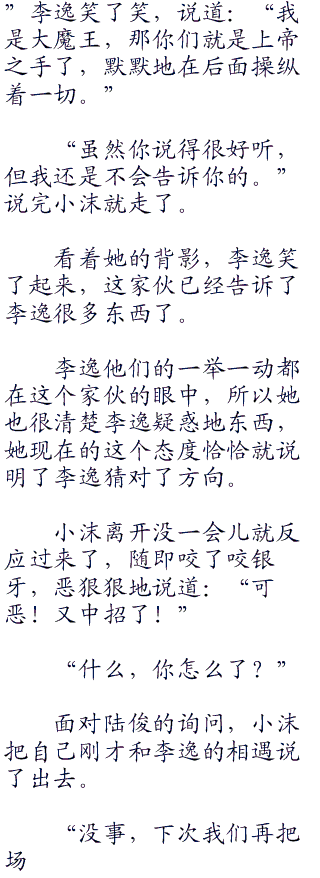 ”李逸笑了笑，说道：“我
是大魔王，那你们就是上帝
之手了，默默地在后面操纵
着一切。”
“虽然你说得很好听，
但我还是不会告诉你的。”
说完小沫就走了。
看着她的背影，李逸笑
了起来，这家伙已经告诉了
李逸很多东西了。
李逸他们的一举一动都
在这个家伙的眼中，所以她
也很清楚李逸疑惑地东西，
她现在的这个态度恰恰就说
明了李逸猜对了方向。
小沫离开没一会儿就反
应过来了，随即咬了咬银
牙，恶狠狠地说道：“可
恶！又中招了！”
“什么，你怎么了？”
面对陆俊的询问，小沫
把自己刚才和李逸的相遇说
了出去。
“没事，下次我们再把
场